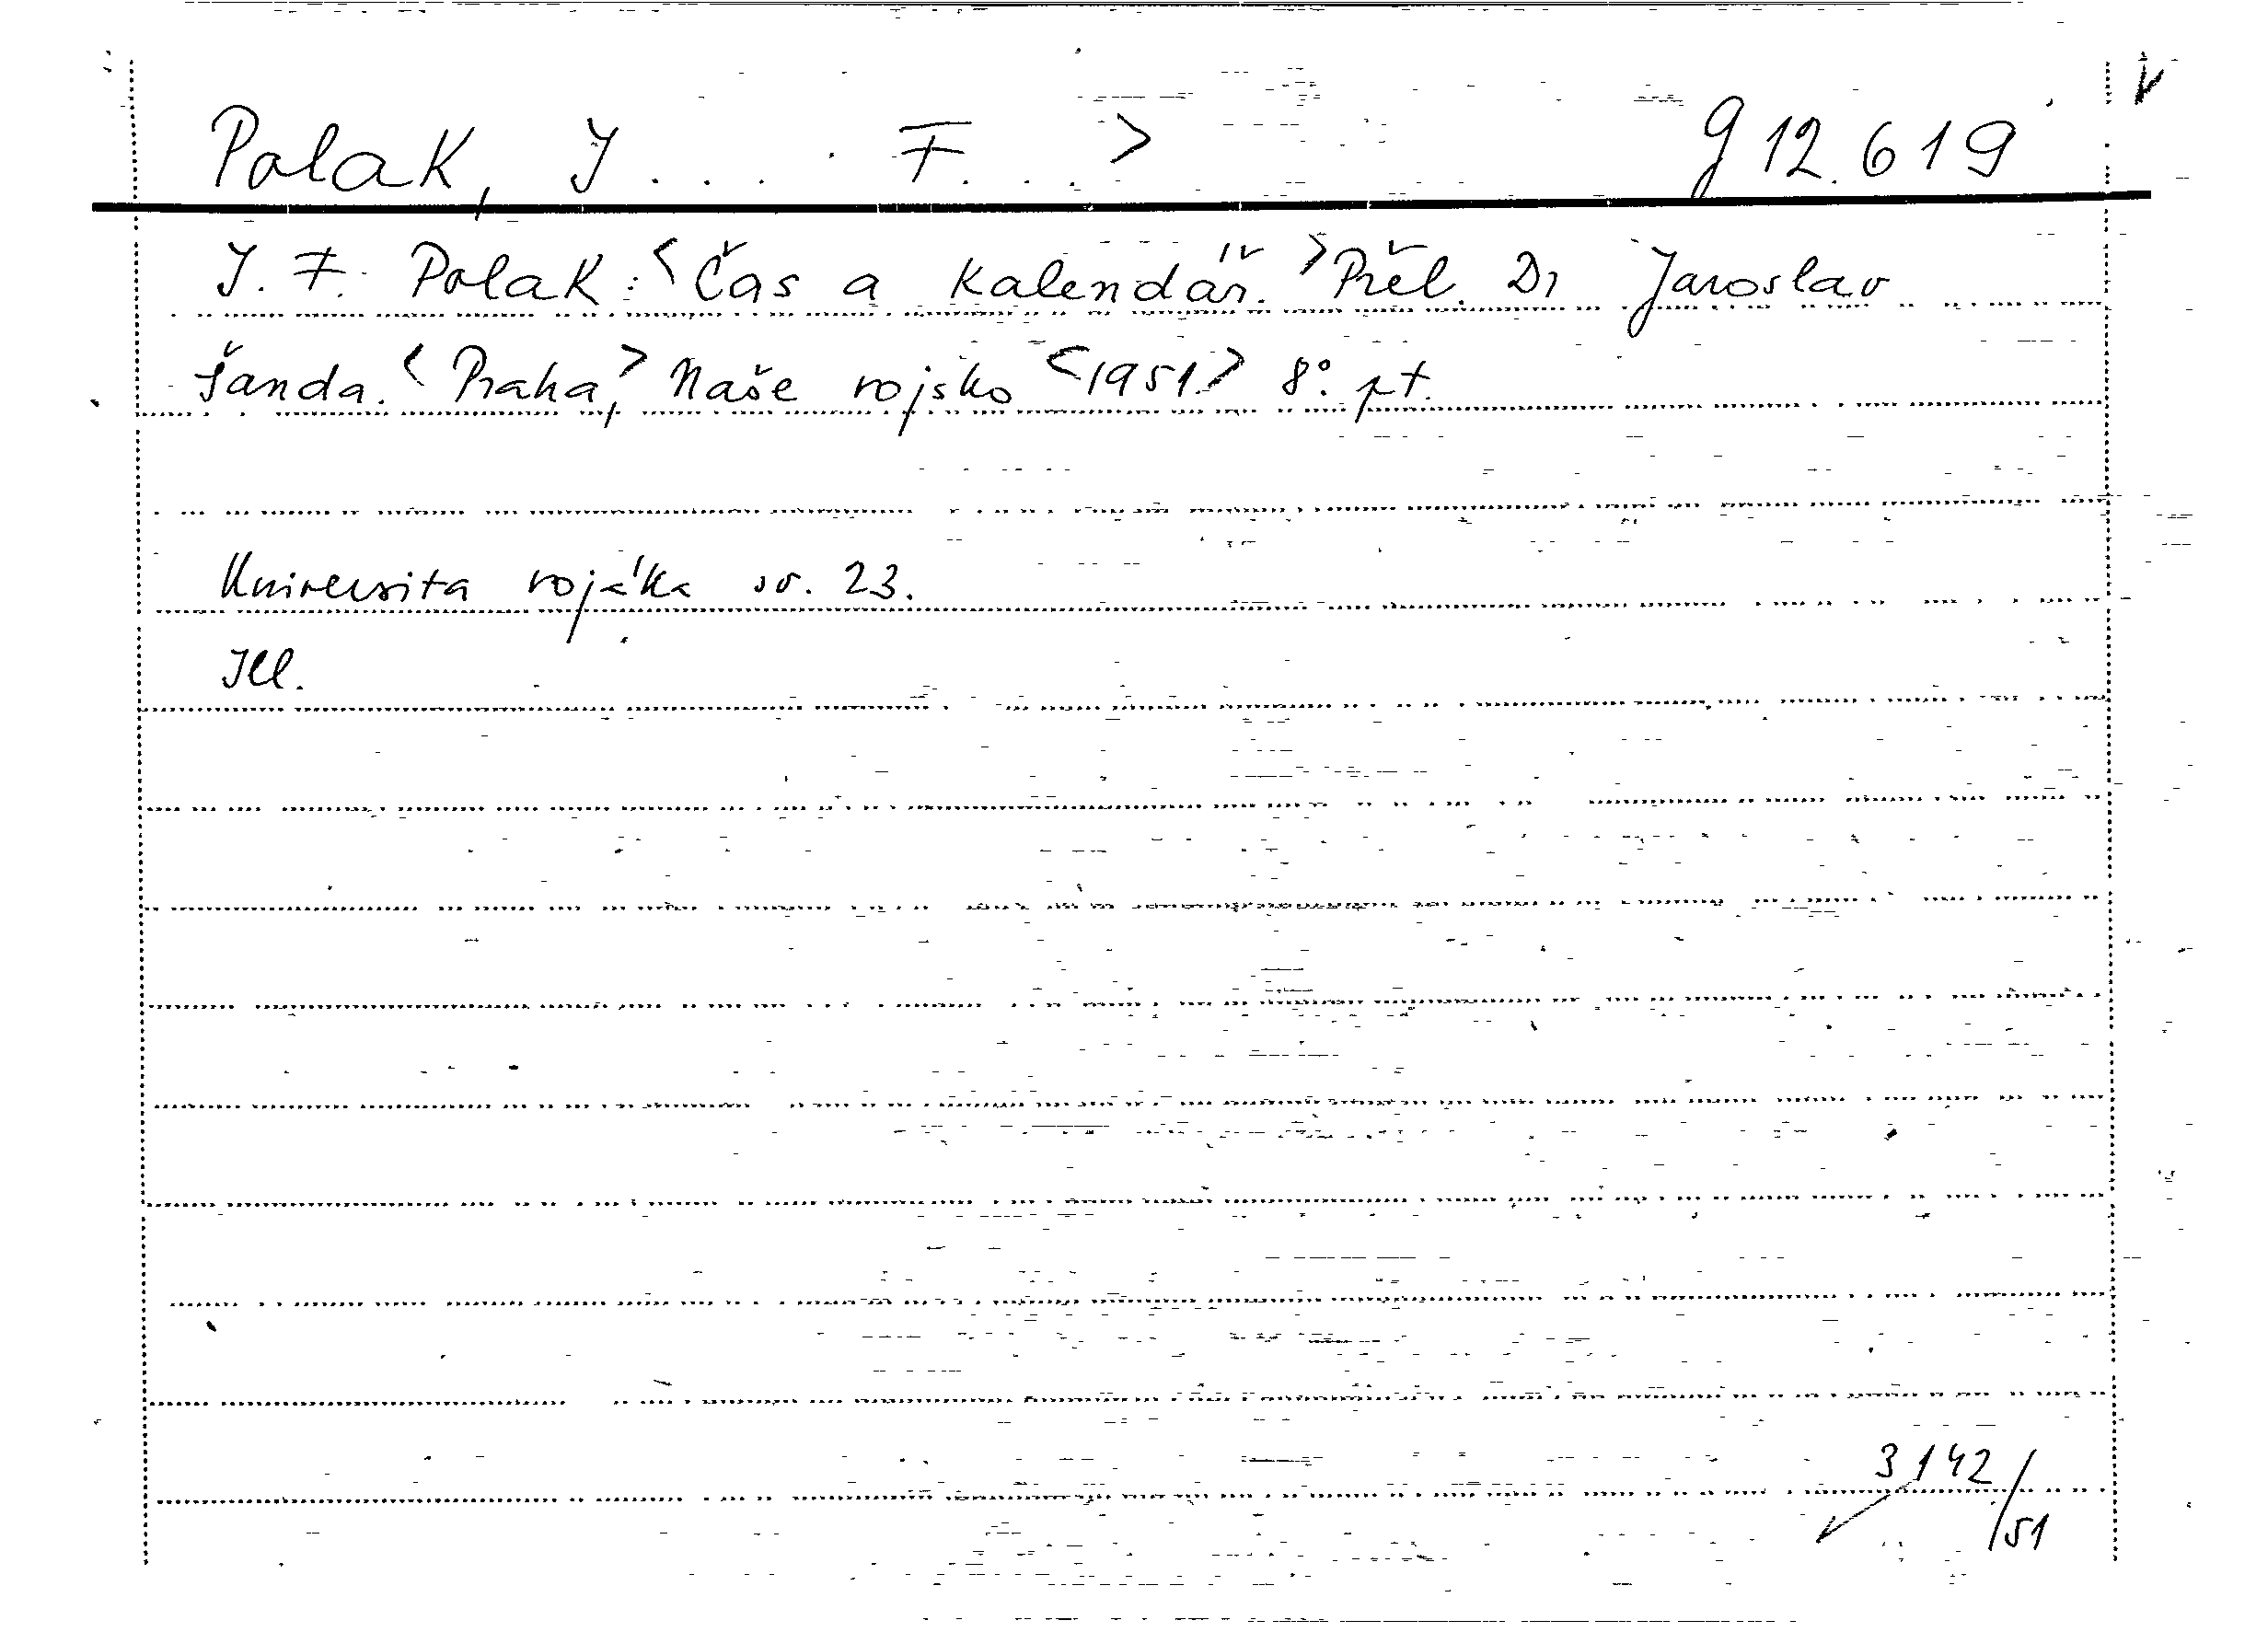 Polak, J... F...> g 12.619
J. F. Polak: <Čas a kalendář.> Přel. Dr Jaroslav
Šanda. <Praha,> Naše vojsko <1951.> 8°. pt.
Universita vojáka sv. 23.
Ill.
3142/51